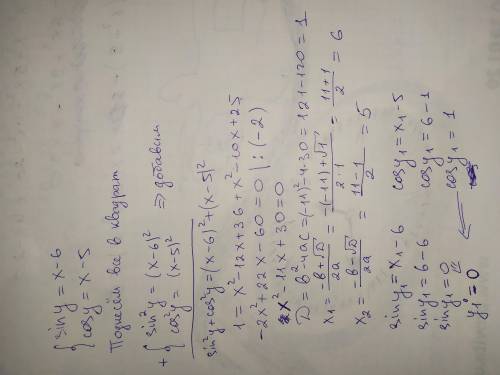 { sin y = x - 6
{ cos y = x - 5
Поднесём все в квадрат
+ { sin² y = (x - 6)²
{ cos² y = (x - 5)² ⇒ добавим
sin² y + cos² y = (x - 6)² + (x - 5)²
1 = x² - 12x + 36 + x² - 10x + 25
-2x + 22x - 60 = 0 | : (-2)
x² - 11x + 30 = 0
D = b² - 4ac = (-11) - 4·30 = 121 - 120 = 1
x₁ = b - √D / 2a = -(-11) + √1 / 2·1 = 11 + 1 / 2 = 6
x₂ = b - √D / 2a = 11 - 1 / 2 = 5
sin y₁ = x₁ - 6 cos y₁ = x₁ - 5
sin y₁ = 6 - 6 cos y₁ = 6 - 1
sin y₁ = 0 cos y₁ = 1
y₁ = 0